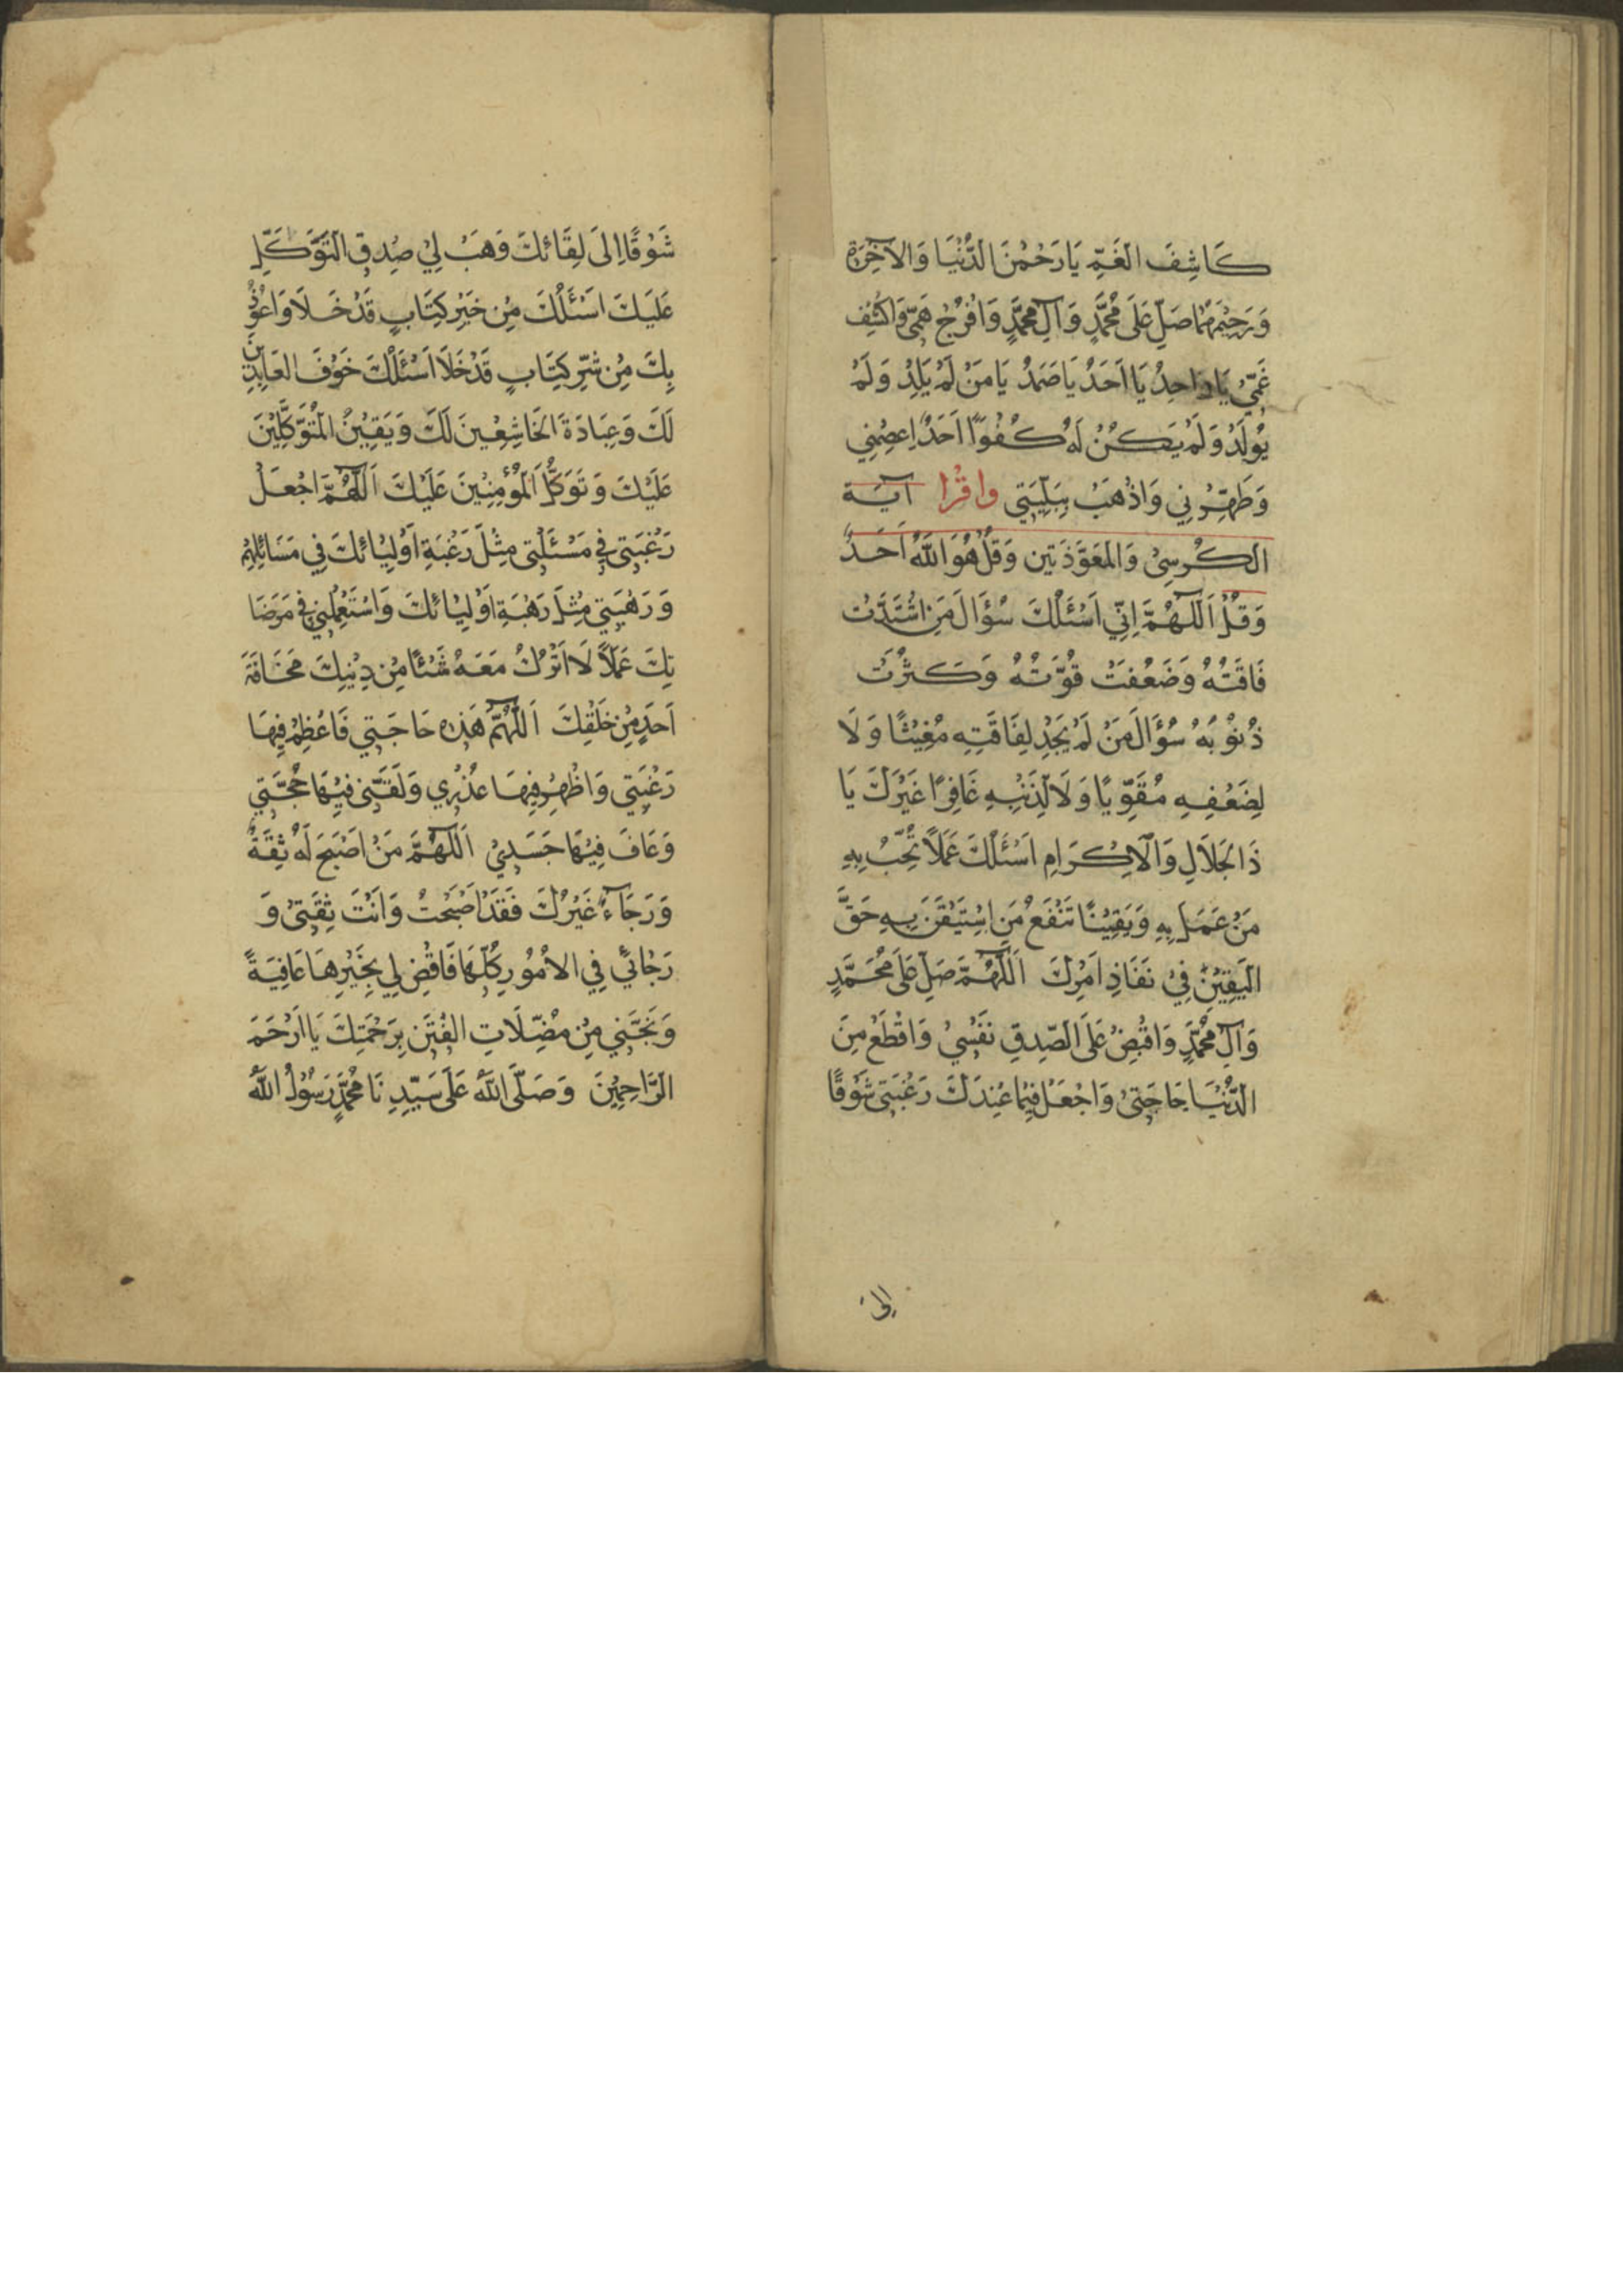 كَاشِفَ الغَمِّ يَارَحْمٰنَ الدُّنْيَا وَالآخِرَةِ
وَرَحِيْمَهُمَا صَلِّ عَلَى مُحَمَّدٍ وَآلِ مُحَمَّدٍ وَافْرُجْ هَمِّي وَاكْشِفْ
غَمِّيْ يَا وَاحِدُ يَا اَحَدُ يَا صَمَدُ يَا مَنْ لَمْ يَلِدْ وَلَمْ
يُوْلَدْ وَلَمْ يَكُنْ لَهُ كُفُوًا اَحَدٌ اِعصِمْنِي
وَطَهِّرْنِي وَاذْهَبْ بِبَلِيَّتِي وَاقْرَا آيَة
الكُرسِيْ وَالمَعَوَّذَتين وَقُلْ هُوَ اللّٰهُ اَحَدٌ
وَقُلْ اَللّٰهُمَّ اِنِّي اَسْئَلُكَ سُؤَالَ مَنِ اشْتَدَّتْ
فَاقَتُهُ وَضَعُفَتْ قُوَّتُهُ وَكَثُرَتْ
ذُنُوْبُهُ سُؤَالَ مَنْ لَمْ يَجِدْ لِفَاقَتِهِ مُغِيْثًا وَلَا
لِضَعْفِهِ مُقَوِّيًا وَلَا لِذَنْبِهِ غَافِرًا غَيْرَكَ يَا
ذَا الجَلاَلِ وَالْاِكْرَامِ اَسْئَلُكَ عَمَلًا تُحِبُّ بِهِ
مَنْ عَمَلَ بِهِ وَيَقِيْنًا تَنْفَعُ مَنِ اسْتَيْقَنَ بِهِ حَقَّ
اليَقِيْنِ فِيْ نَفَاذِ اَمْرِكَ اَللّٰهُمَّ صَلِّ عَلَى مُحَمَّدٍ
وَآلِ مُحَمَّدٍ وَاقْبِضْ عَلَى الصِّدقِ نَفْسِيْ وَاقْطَعْ مِنَ
الدُّنْيَا حَاجَتِيْ وَاجْعَلْ فِيْمَا عِنْدَكَ رَغْبَتِي شَوْقًا
إلى
شَوْقًا اِلَى لِقَائكَ وَهَبْ لِيْ صِدقِ التَوَّكَلِّ
عَلَيكَ اَسْئَلُكَ مِنْ خَيْرِ كِتَابٍ قَدْ خَلَا وَاعُوْذُ
بِكَ مِنْ شَرِّ كِتَابٍ قَدْ خَلَا اَسْئَلُكَ خَوْفَ العَابِدِيْنَ
لَكَ وَعِبَادَةَ الخَاشِعْينَ لَكَ وَيَقِيْنَ المُتَوَكَّلِيْنَ
عَلَيْكَ وَتَوَكُّلَ المُؤْمِنِيْنَ عَلَيْكَ اَللّٰهُمَّ اجْعَلْ
رَغْبَتِي فِي مَسْئَلَتِي مِثْلَ رَغْبَةِ اَوْلِيْائكَ فِي مَسَائِلِهِمْ
وَرَهْبَتِي مِثْلَ رَهْبَةِ اَوْلِيْائكَ وَاسْتَعْمِلْنِي فِي مَرَضَا
تِكَ عَمَلًا لَا اَتْرُكُ مَعَهُ شَئْا مِنْ دِيْنِكَ مَخَافَةَ
اَحَدٍ مِنْ خَلْقِكَ اَللّٰهُمَّ هَذِه حَاجَتِي فَاعْظِمْ فِيْهَا
رَغْبَتِي وَاظْهِرْ فِيْهَا عُذْرِي وَلَقِّنِي فِيْهَا حُجَّتِي
وَعَافِ فِيْهَا جَسَدِيْ اَللّٰهُمَّ مَنْ اَصْبَحَ لَهُ ثِقَةٌ
وَرَجَاءٌ غَيْرُكَ فَقَدْ اَصْبَحْتُ وَانْتَ ثِقَتِيْ وَ
رَجْائيْ فِي الاُمُوْرِ كُلِّهَا فَاقْضِ لِي بِخَيْرِهَا عَافِيَةً
وَنَجِّنِي مِنْ مُضِّلَاتِ الفِتَنِ بِرَحْمَتِكَ يَا اَرْحَمَ
الرَّاحِمِيْنَ وَصَلَّى اللّٰهُ عَلَى سَيِّدِنَا مُحَمَّدٍ رَسُوْلُ اللّٰهِ